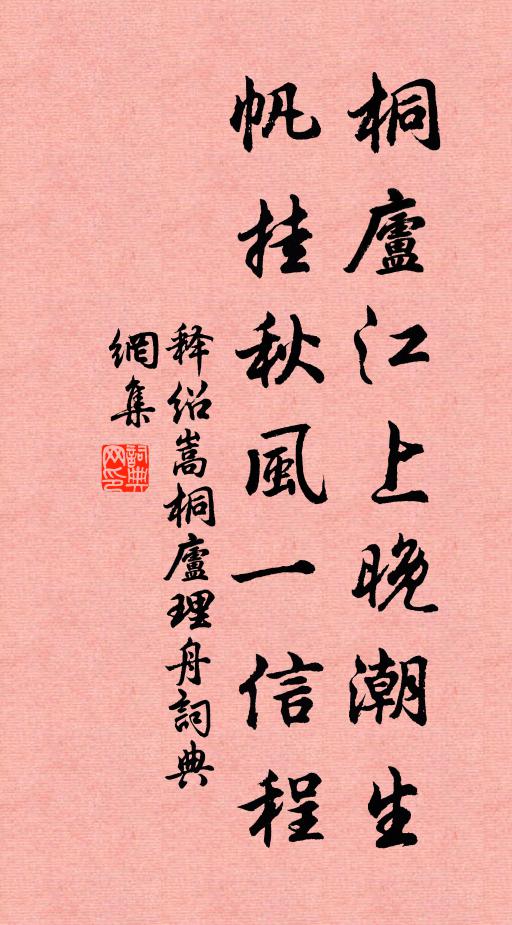 桐廬江上晚潮生
帆挂秋風一信程
释绍嵩桐廬理舟詞典
網集
詞典
网印